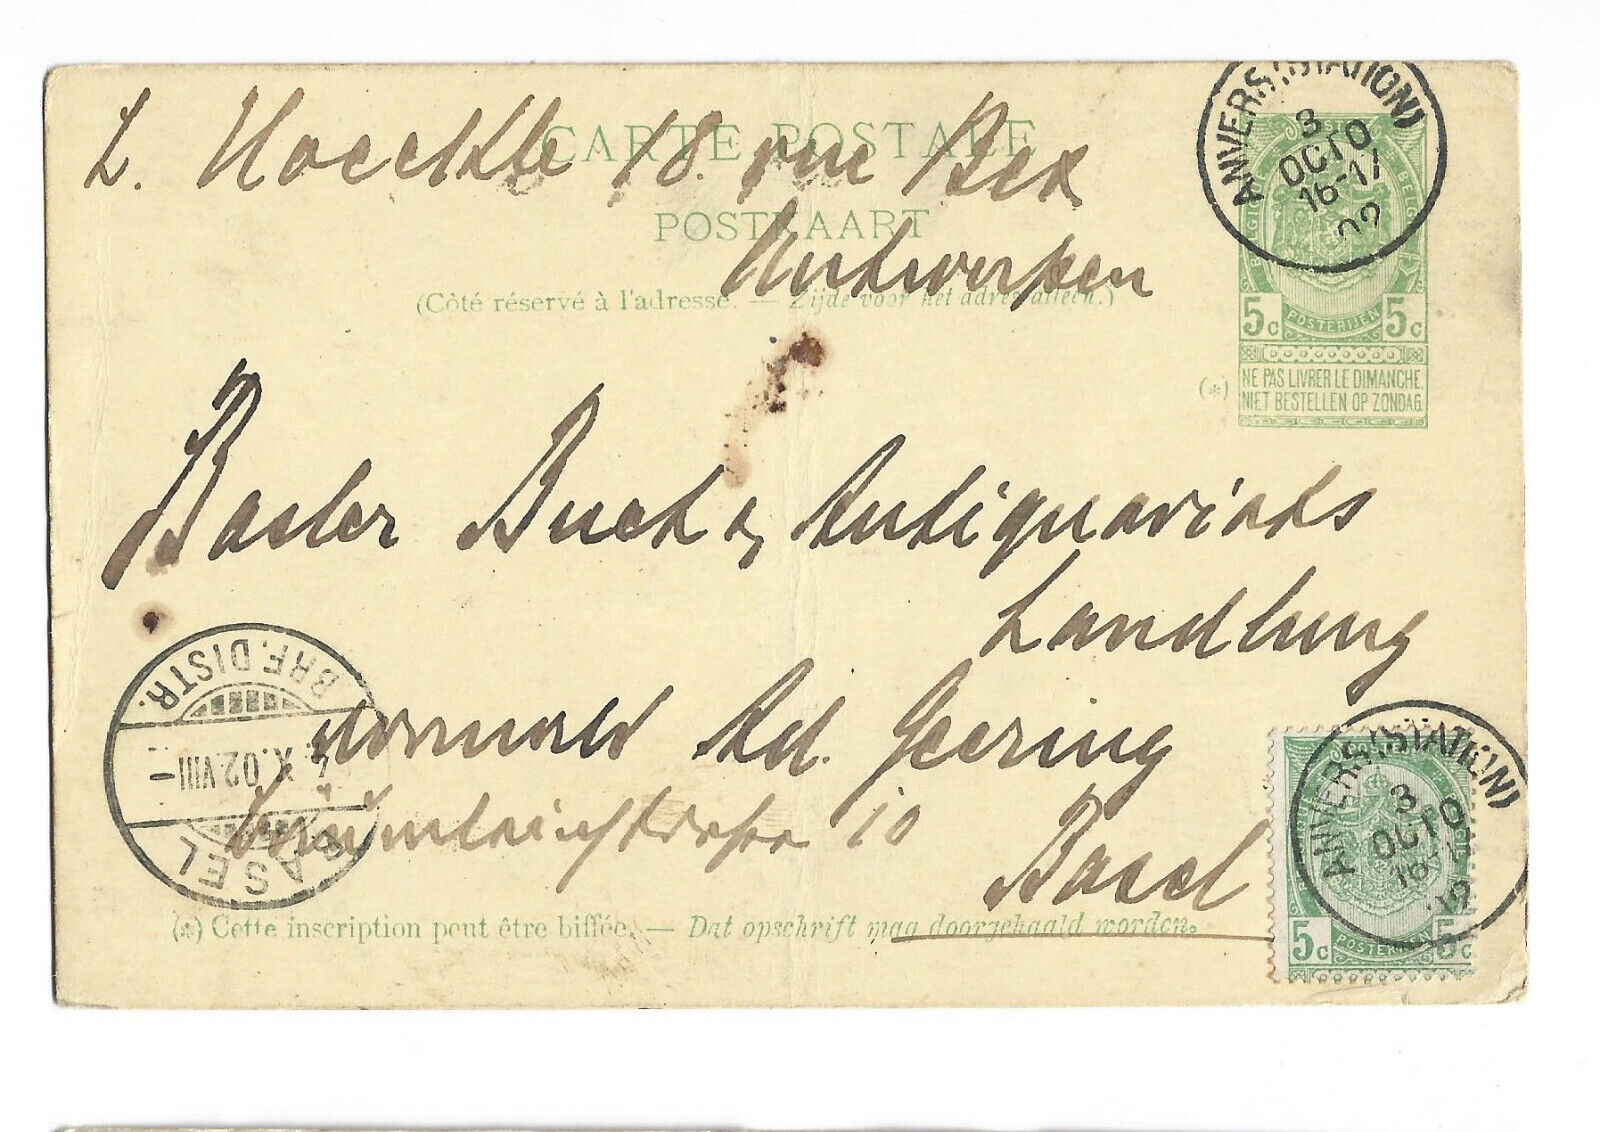 CARTE POSTALE
L. Hoeckle 18. rue Bex
POSTKAART
Antwerpen
(Côté réservé à l'adresse. — Zijde voor het adres alleen.)
ANVERS (STATION)
3
OCTO
16-17
02
BELGI
5c POSTERIJEN 5c
(*) NE PAS LIVRER LE DIMANCHE.
NIET BESTELLEN OP ZONDAG.
Basler Buch & Antiquariats
handlung
vormals Ad. Geering
10
Basel
BRF. DISTR.
X.02.VIII-
BASEL
ANVERS (STATION)
3
OCTO
16-17
02
5c POSTERIJEN 5c
(*) Cette inscription peut être biffée. — Dat opschrift mag doorgehaald worden.